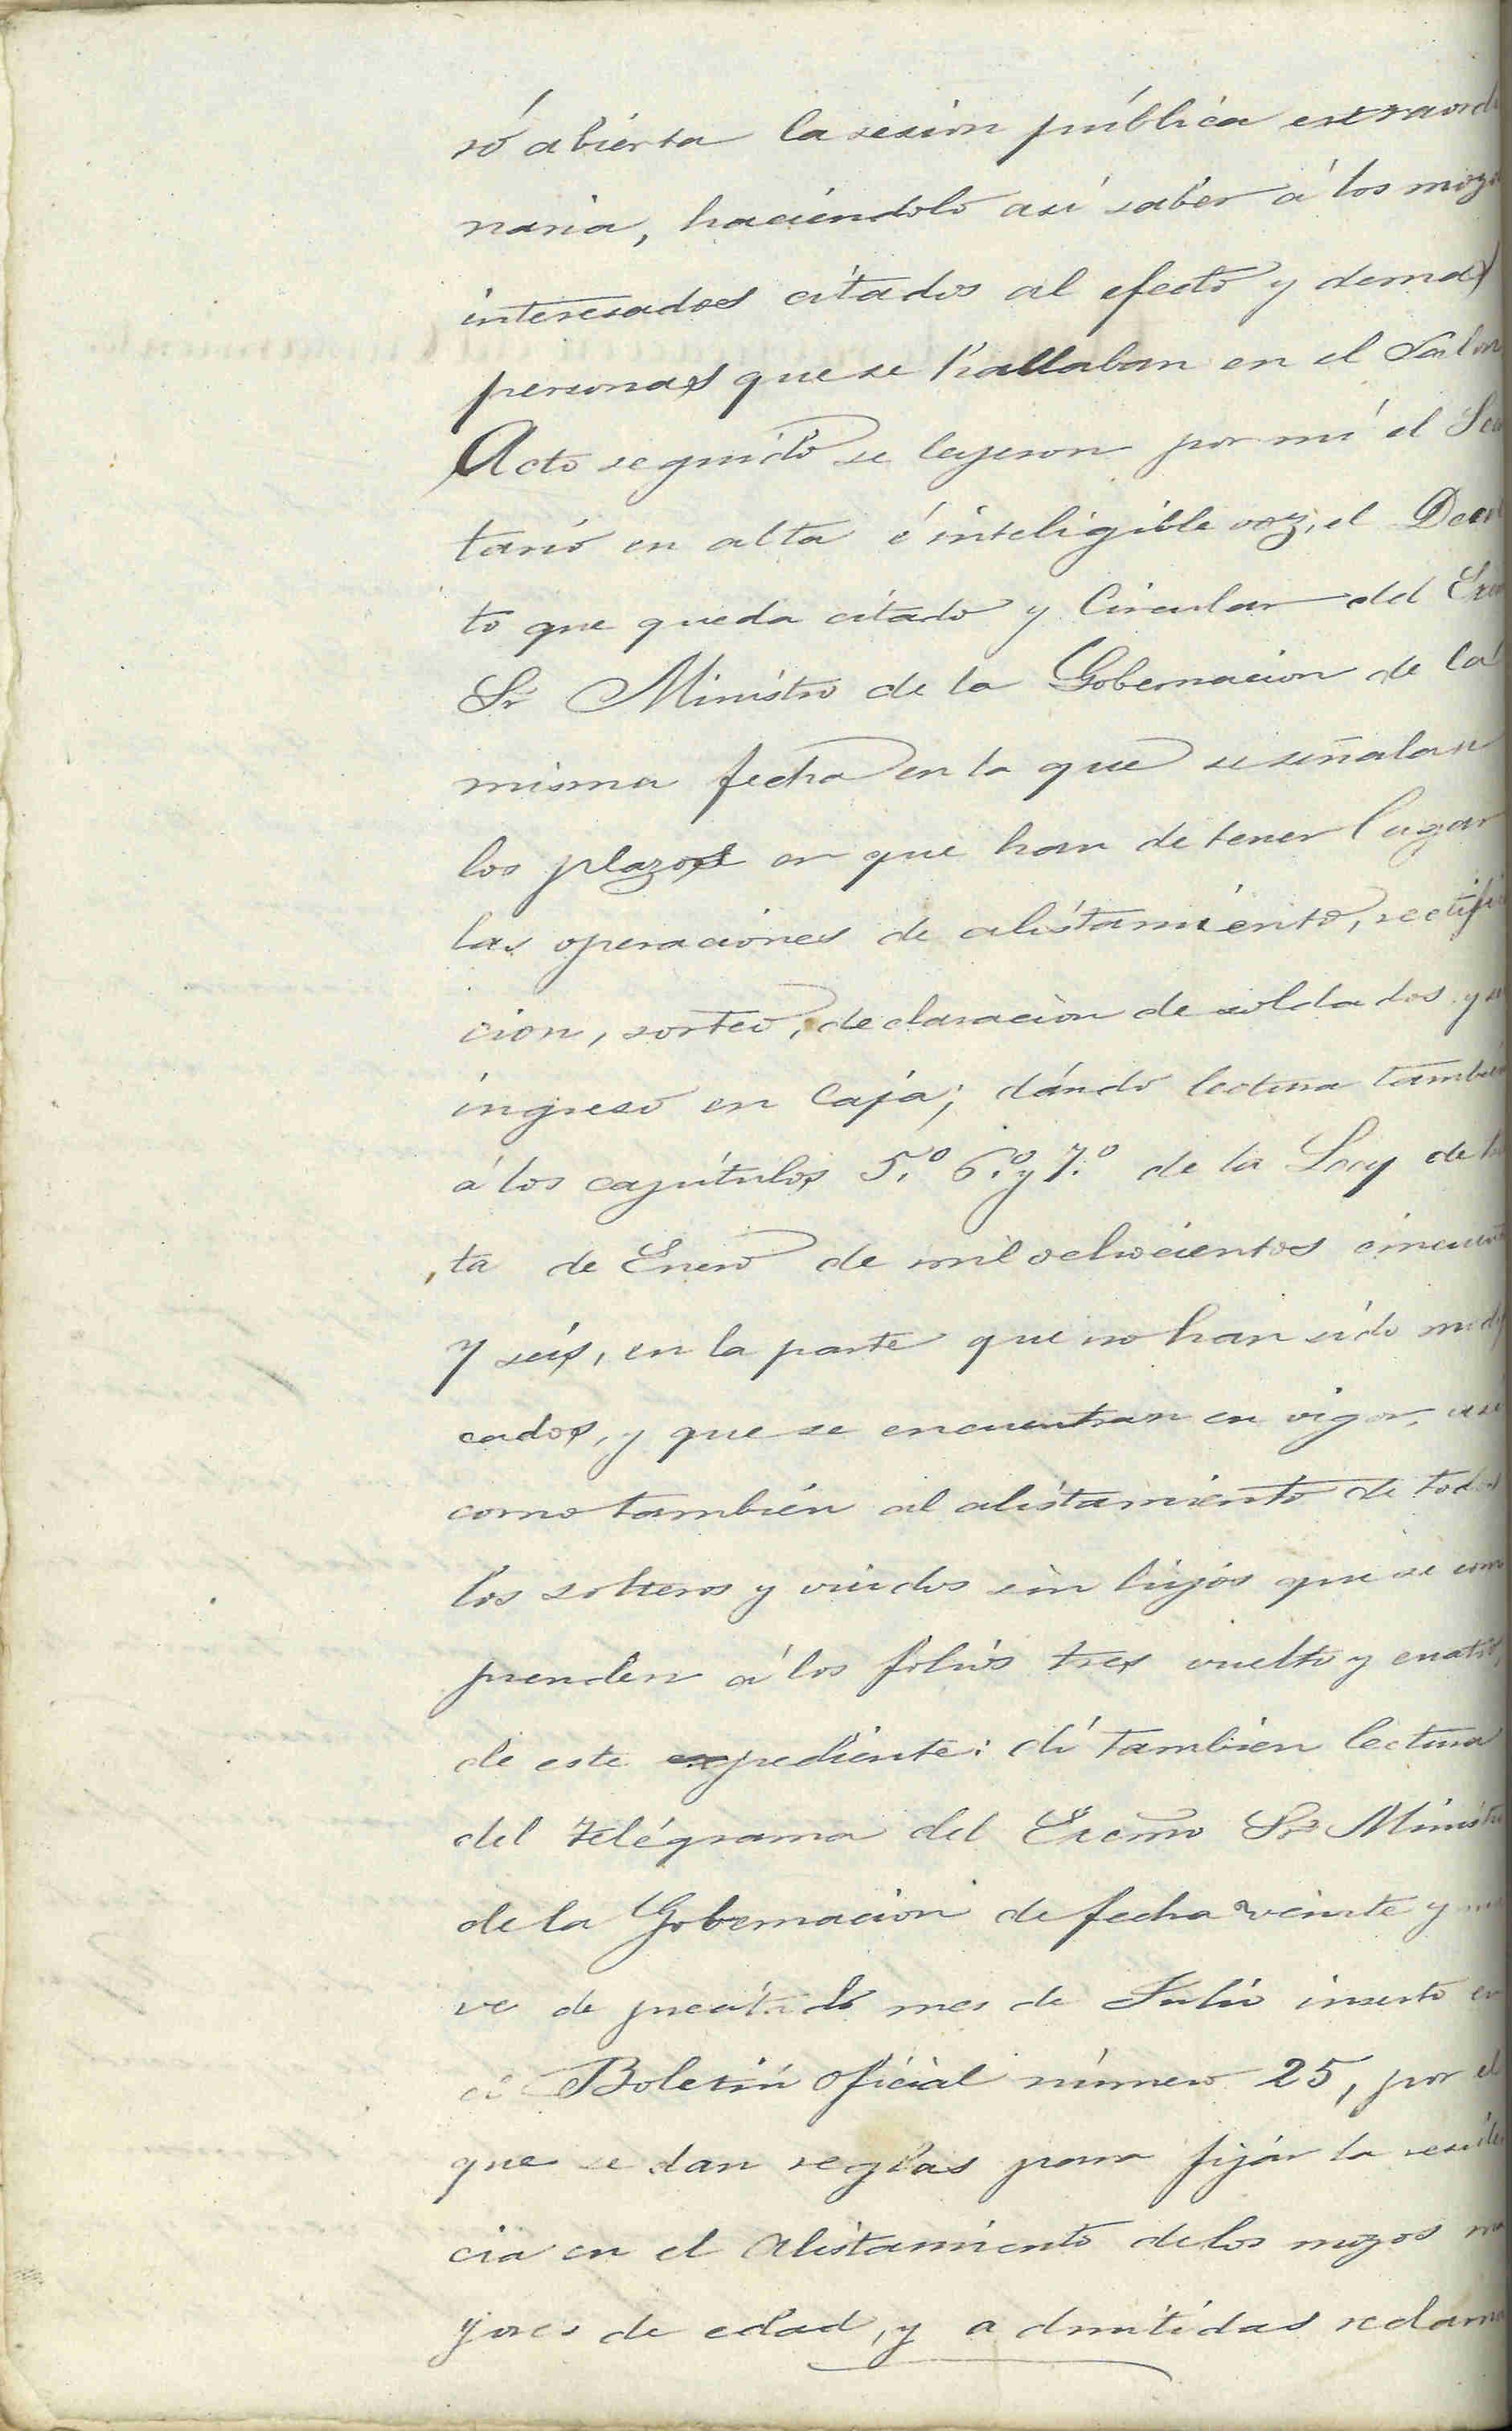 ró abierta la sesion pública extraord
naria, haciéndolo así saber á los mozo
interesados citados al efecto y demas
personas que se hallaban en el Salon
Acto seguido se leyeron por mí el Se
tario en alta é inteligible voz, el Decre
to que queda citado y Circular del Exc
Sr Ministro de la Gobernacion de la
misma fecha en la que se señalan
los plazos en que han de tener lugar
las operaciones de alistamiento, rectifi
cion, sorteo, declaracion de soldados y
ingreso en Caja; dándo lectura tambien
á los capítulos 5.º 6.º y 7.º de la Ley de
ta de Enero de mil ochocientos cincuent
y seis, en la parte que no han sido modi
cados, y que se encuentran en vigor, asi
como también al alistamiento de todos
los solteros y viudos sin hijos que se com
prenden á los folios tres vuelto y cuatro,
de este expediente: dí tambien lectura
del telégrama del Excmo Sr Ministro
de la Gobernacion de fecha veinte y
ve de preterito mes de Julio inserto en
el Boletin oficial número 25, por el
que se dan reglas para fijár la residen
cia en el alistamiento de los mozos ma
yores de edad, y admitidas reclama